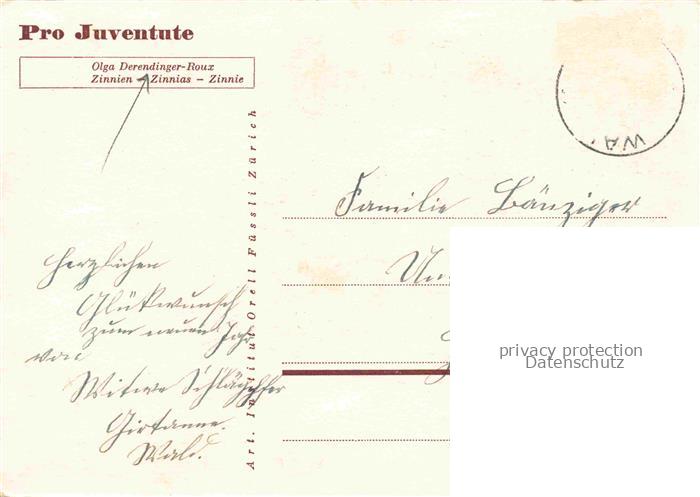 Pro Juventute
Olga Derendinger-Roux
Zinnien – Zinnias – Zinnie
Art. Institut Orell Füssli Zürich
WA
Familie Bänziger
Un
herzlichen
Glückwunsch
zum neuen Jahr
von
Witwe Schläpfer
Girtanne.
Wald.
privacy protection
Datenschutz